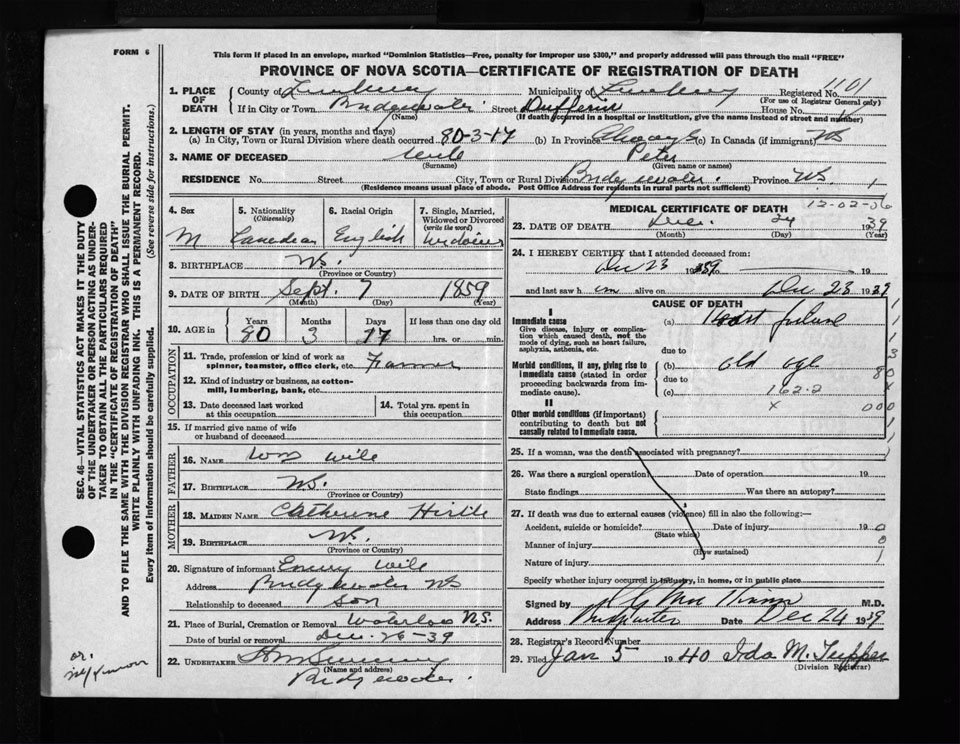 FORM 6
This form if placed in an envelope, marked "Dominion Statistics—Free, penalty for improper use $300," and properly addressed will pass through the mail "FREE"
PROVINCE OF NOVA SCOTIA—CERTIFICATE OF REGISTRATION OF DEATH
SEC. 46—VITAL STATISTICS ACT MAKES IT THE DUTY
OF THE UNDERTAKER OR PERSON ACTING AS UNDER-
TAKER TO OBTAIN ALL THE PARTICULARS REQUIRED
IN THE "CERTIFICATE OF REGISTRATION OF DEATH"
AND TO FILE THE SAME WITH THE DIVISION REGISTRAR WHO SHALL ISSUE THE BURIAL PERMIT.
WRITE PLAINLY WITH UNFADING INK. THIS IS A PERMANENT RECORD.
Every item of information should be carefully supplied. (See reverse side for instructions.)
1. PLACE OF DEATH
County of Lunenburg Municipality of Lunenburg Registered No. 1101
(For use of Registrar General only)
If in City or Town Bridgewater Street Dufferin House No.
(Name) (If death occurred in a hospital or institution, give the name instead of street and number)
2. LENGTH OF STAY (in years, months and days)
(a) In City, Town or Rural Division where death occurred 80-3-17 (b) In Province Always (c) In Canada (if immigrant) NS
3. NAME OF DECEASED Wile Peter
(Surname) (Given name or names)
RESIDENCE No. Street City, Town or Rural Division Bridgewater. Province NS. 1
(Residence means usual place of abode. Post Office Address for residents in rural parts not sufficient)
4. Sex 5. Nationality (Citizenship) 6. Racial Origin 7. Single, Married, Widowed or Divorced (write the word)
M Canadian English Widower
8. BIRTHPLACE NS.
(Province or Country)
9. DATE OF BIRTH Sept. 7 1859
(Month) (Day) (Year)
10. AGE in Years Months Days If less than one day old
80 3 17 hrs. or min.
OCCUPATION
11. Trade, profession or kind of work as spinner, teamster, office clerk, etc. Farmer
12. Kind of industry or business, as cotton-mill, lumbering, bank, etc.
13. Date deceased last worked at this occupation 14. Total yrs. spent in this occupation
15. If married give name of wife or husband of deceased
FATHER
16. NAME Wm Wile
17. BIRTHPLACE NS.
(Province or Country)
MOTHER
18. MAIDEN NAME Catherine Hirtle
19. BIRTHPLACE NS.
(Province or Country)
20. Signature of informant Emery Wile
Address Bridgewater NS
Relationship to deceased Son
21. Place of Burial, Cremation or Removal Waterloo N.S.
Date of burial or removal Dec-26-39
22. UNDERTAKER
(Name and address)
Bridgewater.
MEDICAL CERTIFICATE OF DEATH 12-02-06
23. DATE OF DEATH Dec. 24 1939
(Month) (Day) (Year)
24. I HEREBY CERTIFY that I attended deceased from:
Dec 23 1939 19
and last saw him alive on Dec 23 1939
CAUSE OF DEATH
I
Immediate cause (a) Heart failure
Give disease, injury or complication which caused death, not the mode of dying, such as heart failure, asphyxia, asthenia, etc.
due to
Morbid conditions, if any, giving rise to immediate cause (stated in order proceeding backwards from immediate cause) (b) old age
due to 80
(c) 162.2 x
II x 000
Other morbid conditions (if important) contributing to death but not causally related to immediate cause.
25. If a woman, was the death associated with pregnancy?
26. Was there a surgical operation Date of operation 19
State findings Was there an autopsy?
27. If death was due to external causes (violence) fill in also the following:—
Accident, suicide or homicide? Date of injury 19 0
(State which)
Manner of injury 0
(How sustained)
Nature of injury 1
Specify whether injury occurred in industry, in home, or in public place
Signed by M.D.
Address Bridgewater Date Dec 24 1939
28. Registrar's Record Number
29. Filed Jan 5 1940 Ida M. Tupper
(Division Registrar)